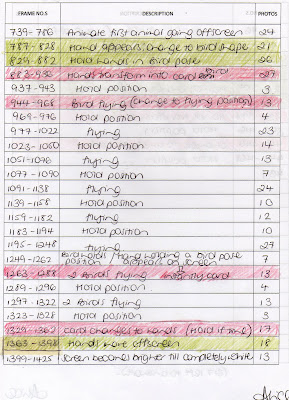 FRAME NO.S DESCRIPTION PHOTOS
739-786 Animate first animal going offscreen 24
787-828 Hand appears, change to bird shape 21
829-882 Hold hands in bird pose 26
883-936 Hands transform into card bird 27
937-943 Hold position 3
944-968 Bird flying (change to flying position) 13
969-976 Hold position 4
977-1022 flying 23
1023-1050 Hold position 14
1051-1076 flying 13
1077-1090 Hold position 7
1091-1138 flying 24
1139-1158 Hold position 10
1159-1182 flying 12
1183-1194 Hold position 10
1195-1248 flying 27
1249-1262 Bird holds / Hand holding a bird pose 7
position / appears on screen
1263-1288 2 Birds flying card 13
1289-1296 Hold position 4
1297-1322 2 Birds flying 13
1323-1328 Hold position 3
1329-1362 card changes to hands (Hold it too) 17
1363-1398 Hands move offscreen 18
1399-1425 Screen becomes brighter till completely white 13